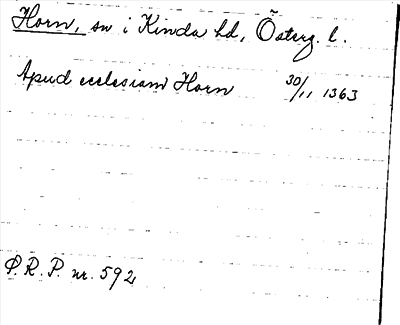 Horn, sn i Kinda hd, Österg. l.
Apud ecclesiam Horn 30/11 1363
P.R.P. nr. 592